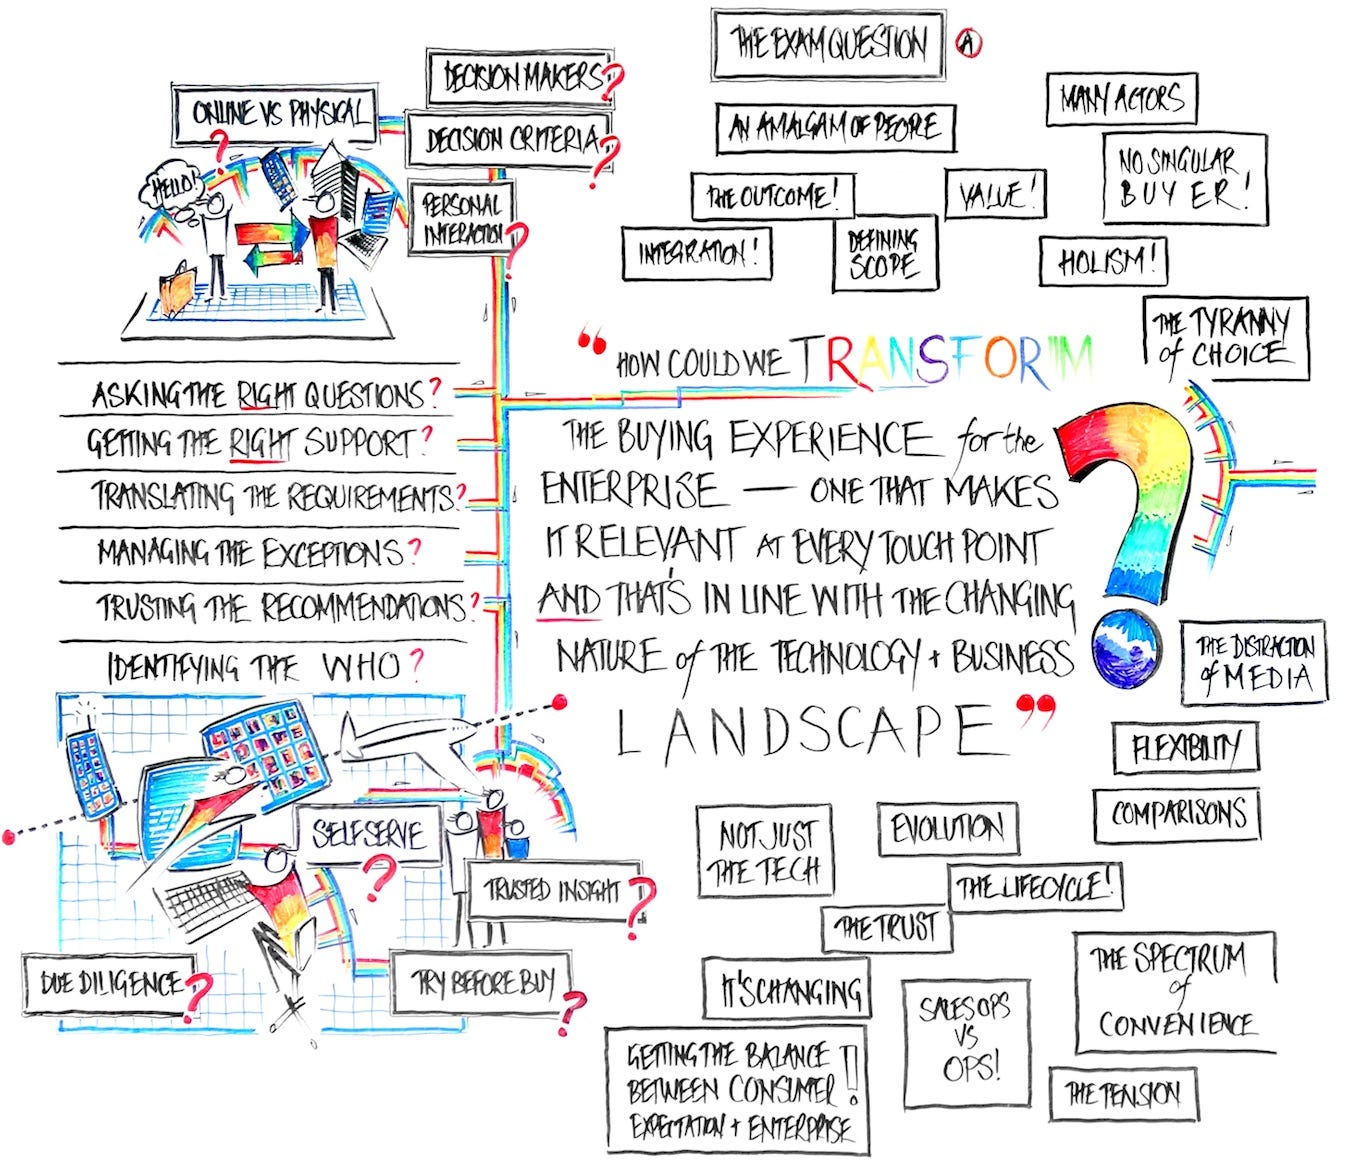 THE EXAM QUESTION
A
DECISION MAKERS?
ONLINE VS PHYSICAL
?
DECISION CRITERIA?
PERSONAL
INTERACTION?
HELLO!
AN AMALGAM OF PEOPLE
MANY ACTORS
NO SINGULAR
BUYER!
THE OUTCOME!
VALUE!
INTEGRATION!
DEFINING
SCOPE
HOLISM!
THE TYRANNY
of CHOICE
ASKING THE RIGHT QUESTIONS?
GETTING THE RIGHT SUPPORT?
TRANSLATING THE REQUIREMENTS?
MANAGING THE EXCEPTIONS?
TRUSTING THE RECOMMENDATIONS?
IDENTIFYING THE WHO?
"HOW COULD WE TRANSFORM
THE BUYING EXPERIENCE for the
ENTERPRISE — ONE THAT MAKES
IT RELEVANT AT EVERY TOUCH POINT
AND THAT'S IN LINE WITH THE CHANGING
NATURE of THE TECHNOLOGY + BUSINESS
LANDSCAPE"
?
THE DISTRACTION
of MEDIA
FLEXIBILITY
COMPARISONS
SELF SERVE
?
TRUSTED INSIGHT?
DUE DILIGENCE?
TRY BEFORE BUY?
NOT JUST
THE TECH
EVOLUTION
THE LIFECYCLE!
THE TRUST
IT'S CHANGING
SALES OPS
VS
OPS!
THE SPECTRUM
of
CONVENIENCE
THE TENSION
GETTING THE BALANCE
BETWEEN CONSUMER!
EXPECTATION + ENTERPRISE